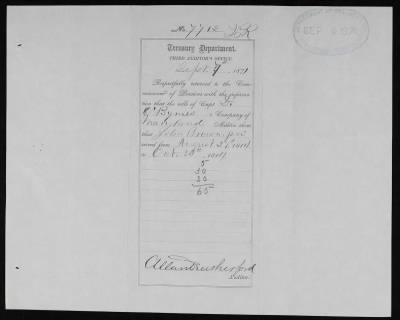 No. 7712
Treasury Department,
THIRD AUDITOR'S OFFICE,
Sept. 7 1871
Respectfully returned to the Com-
missioner of Pensions with the informa-
tion that the rolls of Capt
Company of
Maryland Militia show
that John Brown ser-
ved from August 27 1814
to Oct. 30th, 1814
5
30
30
65
Allan Rutherford
Auditor.
SEP